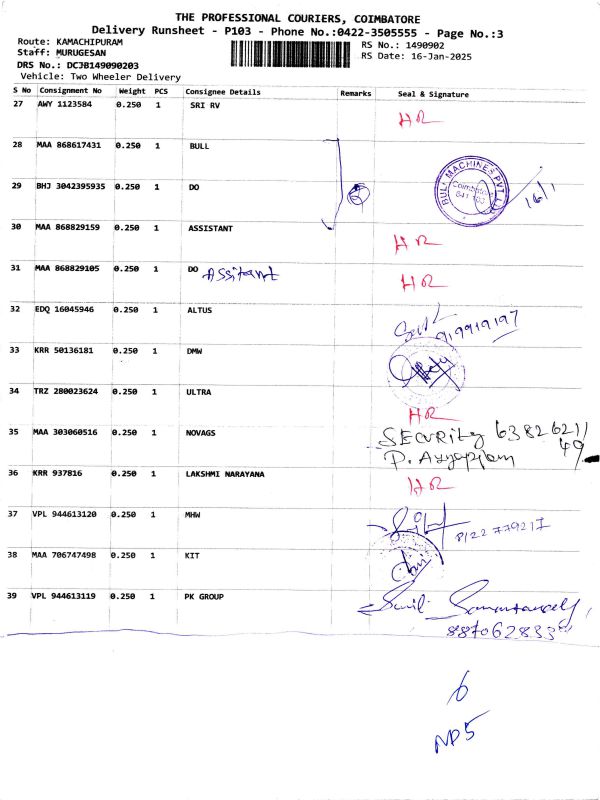 THE PROFESSIONAL COURIERS, COIMBATORE
Delivery Runsheet - P103 - Phone No.:0422-3505555 - Page No.:3
Route: KAMACHIPURAM
Staff: MURUGESAN
DRS No.: DCJB149090203
Vehicle: Two Wheeler Delivery
RS No.: 1490902
RS Date: 16-Jan-2025
S No Consignment No Weight PCS Consignee Details Remarks Seal & Signature
27 AWY 1123584 0.250 1 SRI RV HR
28 MAA 868617431 0.250 1 BULL
29 BHJ 3042395935 0.250 1 DO BULL MACHINES PVT Coimbatore 16/1
30 MAA 868829159 0.250 1 ASSISTANT HR
31 MAA 868829105 0.250 1 DO Assitant HR
32 EDQ 16045946 0.250 1 ALTUS
33 KRR 50136181 0.250 1 DMW
34 TRZ 280023624 0.250 1 ULTRA HR
35 MAA 303060516 0.250 1 NOVAGS SECURity 63826211
49
36 KRR 937816 0.250 1 LAKSHMI NARAYANA HR
37 VPL 944613120 0.250 1 MHW
38 MAA 706747498 0.250 1 KIT
39 VPL 944613119 0.250 1 PK GROUP
6
ND5